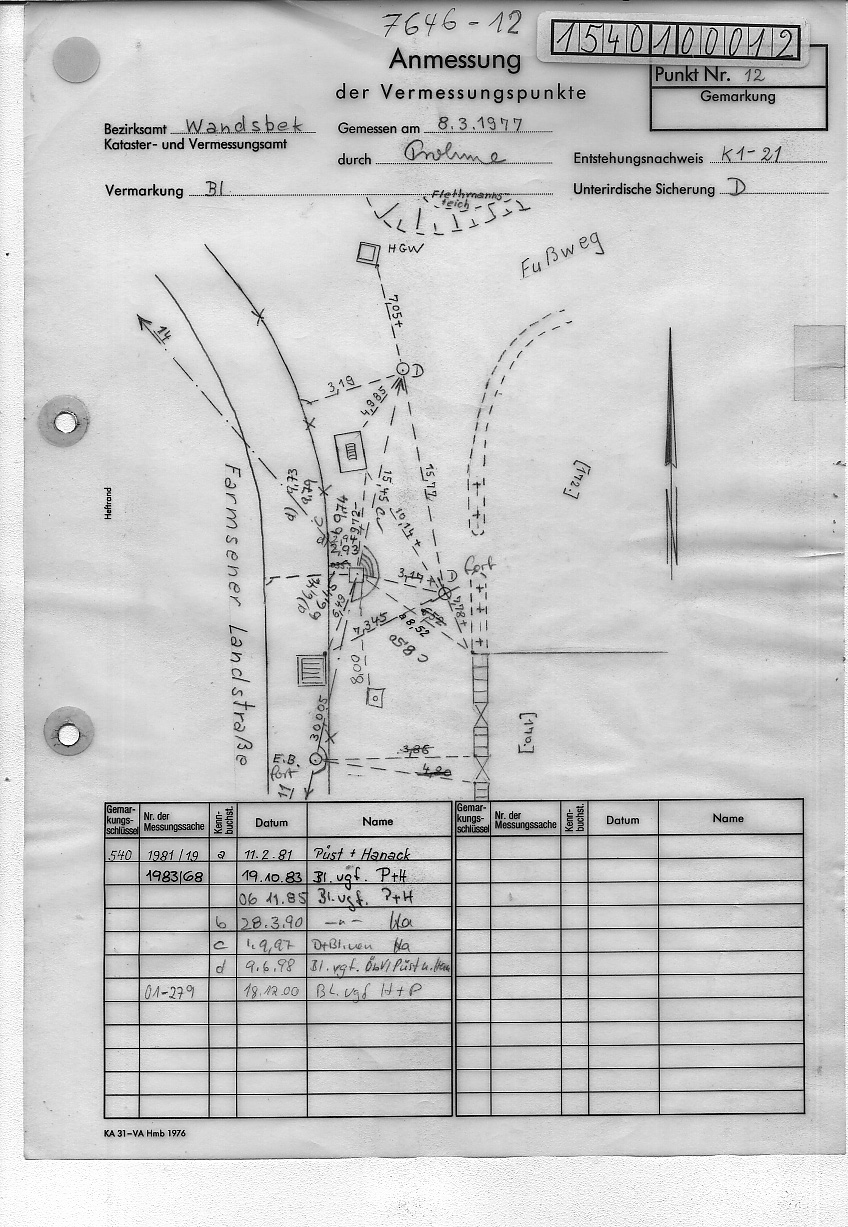 7646-12
1540100012
Anmessung
der Vermessungspunkte
Punkt Nr. 12
Gemarkung
Bezirksamt Wandsbek
Kataster- und Vermessungsamt
Gemessen am 8.3.1977
durch
Entstehungsnachweis K1-21
Vermarkung Bl
Unterirdische Sicherung D
teich
HGW
Fußweg
7,05+
14
D
3,19
4,985
15,45
15,77
[172.]
Heftrand
Farmsener Landstraße
a) 9,73
9,79
b 9,74
10,14+
2,93
3,14+
D
fort
a) 6,46
b 6,45
6,49
7,345
8,52
c 8,50
7,78+
8,00
30,005
[170.]
E.B.
fort
3,86
4,20
11
Gemar-
kungs-
schlüssel
Nr. der
Messungssache
Kenn-
buchst.
Datum
Name
Gemar-
kungs-
schlüssel
Nr. der
Messungssache
Kenn-
buchst.
Datum
Name
540 1981/19 a 11.2.81 Püst + Hanack
1983/68 19.10.83 Bl. vgf. P+H
06 11.85 Bl. vgf. P+H
b 28.3.90 -"- Ha
c 1.9.97 D+Bl. neu Ha
d 9.6.98 Bl. vgf. ÖbVI Püst u.
01-279 18.12.00 BL. vgf H+P
KA 31-VA Hmb 1976